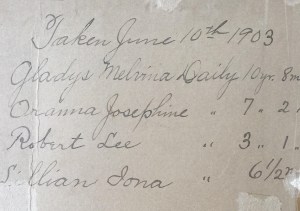 Taken June 10th 1903
Gladys Melvina Daily 10yr. 8m
Oranna Josephine " 7 " 2 "
Robert Lee " 3 " 1 "
Lillian Iona " 6 1/2